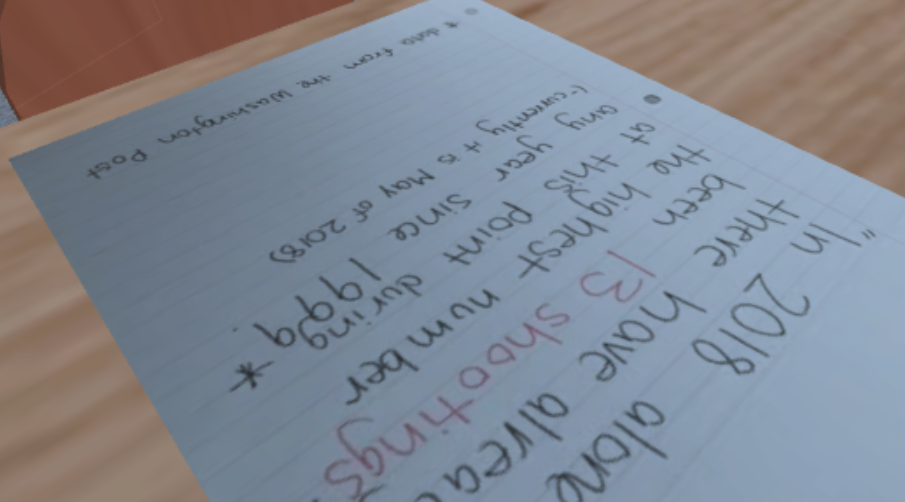 "In 2018 alone
there have alrea
been 13 shootings,
the highest number
at this point during
any year since 1999. *
(currently it is May of 2018)
* data from the Washington Post